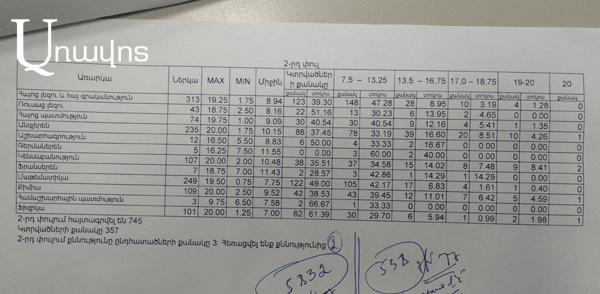 Առավոտ
2-րդ փուլ
Առարկա Ներկա MAX MIN Միջին Կտրվածների քանակը 7,5 – 13,25 13,5 – 16,75 17,0 – 18,75 19-20 20
քանակ տոկոս քանակ տոկոս քանակ տոկոս քանակ տոկոս քանակ տոկոս քանակ
Հայոց լեզու և հայ գրականություն 313 19.25 1.75 8.94 123 39.30 148 47.28 28 8.95 10 3.19 4 1.28 0
Ռուսաց լեզու 43 18.75 2.50 8.16 22 51.16 13 30.23 6 13.95 2 4.65 0 0.00 0
Հայոց պատմություն 74 19.75 1.00 9.09 30 40.54 30 40.54 9 12.16 4 5.41 1 1.35 0
Անգլերեն 235 20.00 1.75 10.15 88 37.45 78 33.19 39 16.60 20 8.51 10 4.26 1
Աշխարհագրություն 12 16.50 5.50 8.83 6 50.00 4 33.33 2 16.67 0 0.00 0 0.00 0
Գերմաներեն 5 16.25 7.50 11.55 0 0.00 3 60.00 2 40.00 0 0.00 0 0.00 0
Կենսաբանություն 107 20.00 2.00 10.48 38 35.51 37 34.58 15 14.02 8 7.48 9 8.41 2
Ֆրանսերեն 7 18.75 7.00 11.43 2 28.57 3 42.86 1 14.29 1 14.29 0 0.00 0
Մաթեմատիկա 249 19.50 0.75 7.75 122 49.00 105 42.17 17 6.83 4 1.61 1 0.40 0
Քիմիա 109 20.00 2.50 9.62 42 38.53 43 39.45 12 11.01 7 6.42 5 4.59 1
Համաշխարհային պատմություն 3 9.75 6.50 7.58 2 66.67 1 33.33 0 0.00 0 0.00 0 0.00 0
Ֆիզիկա 101 20.00 1.25 7.00 62 61.39 30 29.70 6 5.94 1 0.99 2 1.98 1
2-րդ փուլում հայտագրվել են 745
Կտրվածների քանակը 357
2-րդ փուլում քննությունը ընդհատածների քանակը 3. Հեռացվել են քննությունից 2
5832 538